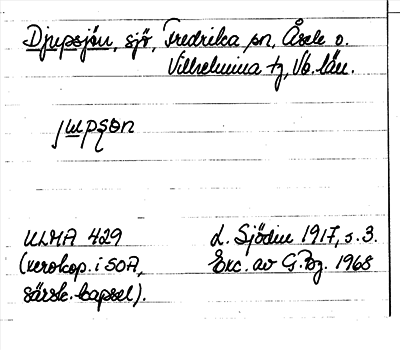 Djupsjön, sjö, Fredrika sn, Åsele o.
Vilhelmina tg, Vb. län.
ULMA 429
L. Sjödin 1917, s. 3.
(xerokop. i SOA,
Exc. av G. Bg. 1968
särsk. kapsel).